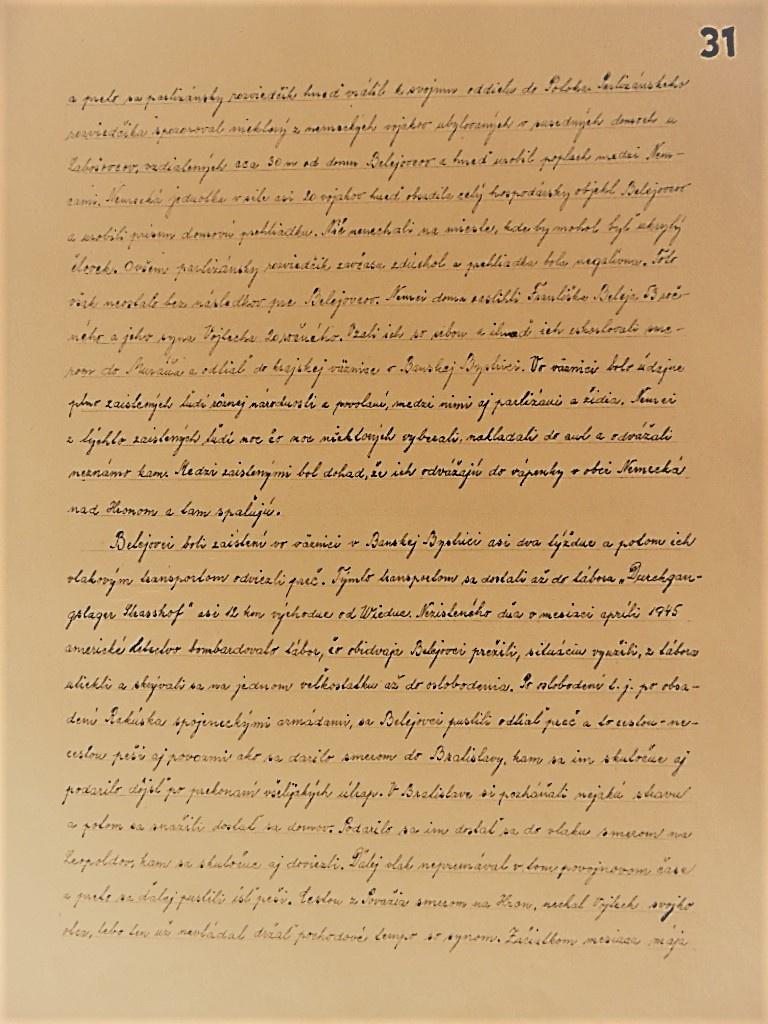 31
a preto sa partizánsky rozviedčik hneď vrátil k svojmu oddielu do Polomka. Partizánskeho
rozviedčika spozoroval niektorý z nemeckých vojakov ubytovaných v susedných domoch u
Zabošovcov, vzdialených cca 30 m od domu Belejovcov a hneď urobil poplach medzi Nem-
cami. Nemecká jednotka v sile asi 20 vojakov hneď obsadila celý hospodársky objekt Belejovcov
a urobili prísnu domovú prehliadku. Nič nenechali na mieste, kde by mohol byť ukrytý
človek. Ovšem partizánsky rozviedčik zavčasu zdúchol a prehliadka bola negatívna. Toto
však neostalo bez následkov pre Belejovcov. Nemci doma zastihli Františka Beleja 53 roč-
ného a jeho syna Vojtecha 20 ročného. Vzali ich so sebou a ihneď ich eskortovali sme-
rom do Muráňa a odtiaľ do krajskej väznice v Banskej Bystrici. Vo väznici bolo údajne
plno zaistených ľudí rôznej národnosti a povolaní, medzi nimi aj partizáni a židia. Nemci
z týchto zaistených ľudí noc čo noc niektorých vyberali, nakladali do aut a odvážali
neznámo kam. Medzi zaistenými bol dohad, že ich odvážajú do vápenky v obci Nemecká
nad Hronom a tam spaľujú.
Belejovci boli zaistení vo väznici v Banskej Bystrici asi dva týždne a potom ich
vlakovým transportom odviezli preč. Týmto transportom sa dostali až do tábora „Durchgan-
gslager Strasshof" asi 12 km východne od Wiedne. Nezisteného dňa v mesiaci apríli 1945
americké letectvo bombardovalo tábor, čo obidvaja Belejovci prežili, situáciu využili, z tábora
utiekli a skrývali sa na jednom veľkostatku až do oslobodenia. Po oslobodení t. j. po obsa-
dení Rakúska spojeneckými armádami, sa Belejovci pustili odtiaľ preč a to cestou-ne-
cestou peši aj povozmi ako sa darilo smerom do Bratislavy, kam sa im skutočne aj
podarilo dôjsť po prekonaní všelijakých útrap. V Bratislave si pozháňali nejakú stravu
a potom sa snažili dostať sa domov. Podarilo sa im dostať sa do vlaku smerom na
Leopoldov, kam sa skutočne aj doviezli. Ďalej vlak nepremával v tom povojnovom čase
a preto sa ďalej pustili ísť peši. Cestou z Považia smerom na Hron, nechal Vojtech svojho
otca, lebo ten už nevládal držať pochodové tempo so synom. Začiatkom mesiaca mája